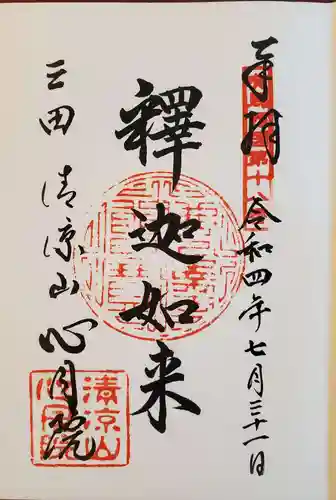 奉拝 令和四年七月三十一日
釋迦如来
三田 清涼山 心月院
清涼山
心月院